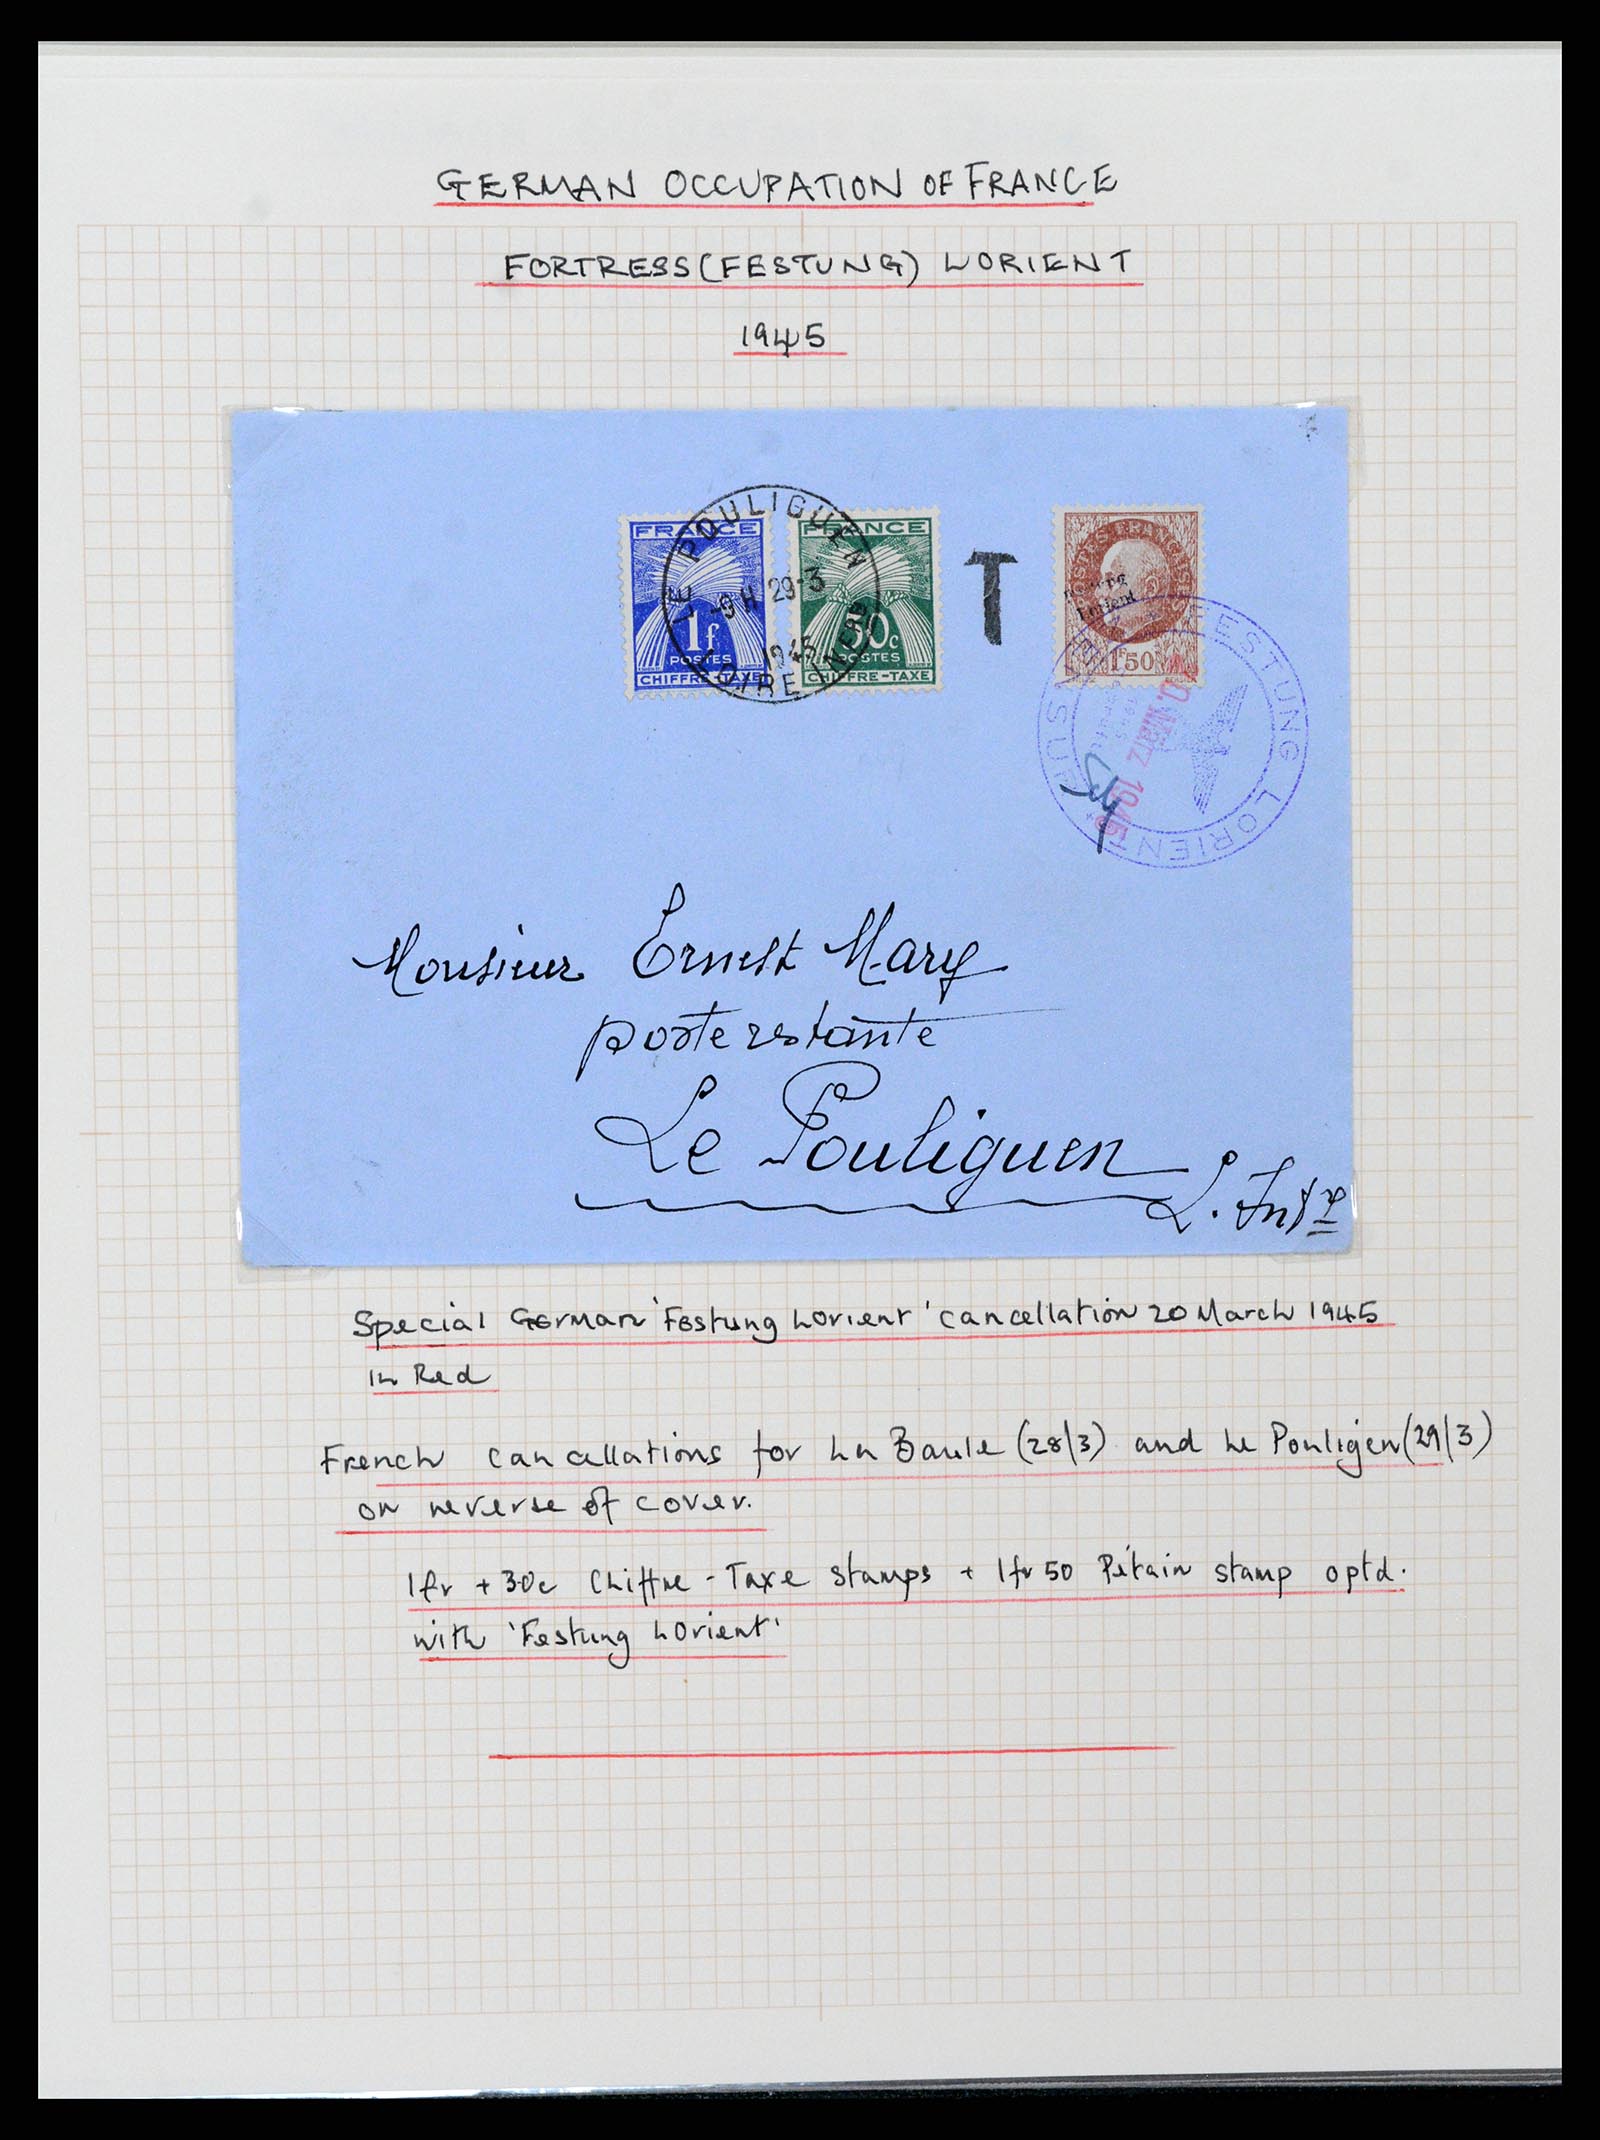 GERMAN OCCUPATION OF FRANCE
FORTRESS (FESTUNG) LORIENT
1945
FRANCE
1f
POSTES
CHIFFRE-TAXE
FRANCE
50c
POSTES
CHIFFRE-TAXE
LE POULIGUEN
-9H 29-3
1945
LOIRE INFRE
T
POSTES FRANÇAISES
Lorient
1F50
FESTUNG LORIENT
20. März 1945
Monsieur Ernest Mary
poste restante
Le Pouliguen
L. Infre
Special German 'Festung Lorient' cancellation 20 March 1945
in Red
French cancellations for La Baule (28/3) and Le Pouligen (29/3)
on reverse of cover.
1fr + 30c Chiffre-Taxe stamps + 1fr50 Pétain stamp optd.
with 'Festung Lorient'